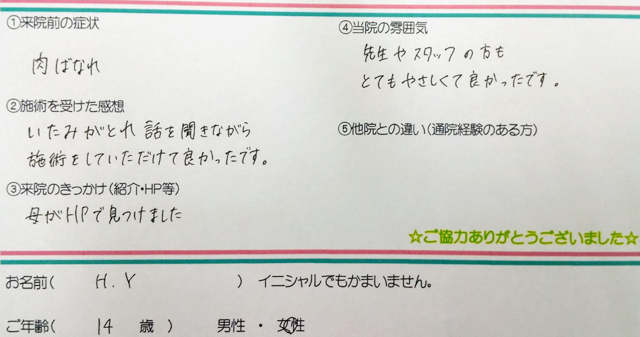 ①来院前の症状
肉ばなれ
②施術を受けた感想
いたみがとれ 話を聞きながら
施術をしていただけて良かったです。
③来院のきっかけ(紹介・HP等)
母がHPで見つけました
④当院の雰囲気
先生やスタッフの方も
とてもやさしくて良かったです。
⑤他院との違い(通院経験のある方)
☆ご協力ありがとうございました☆
お名前( H.Y ) イニシャルでもかまいません。
ご年齢( 14 歳 ) 男性 ・ 女性